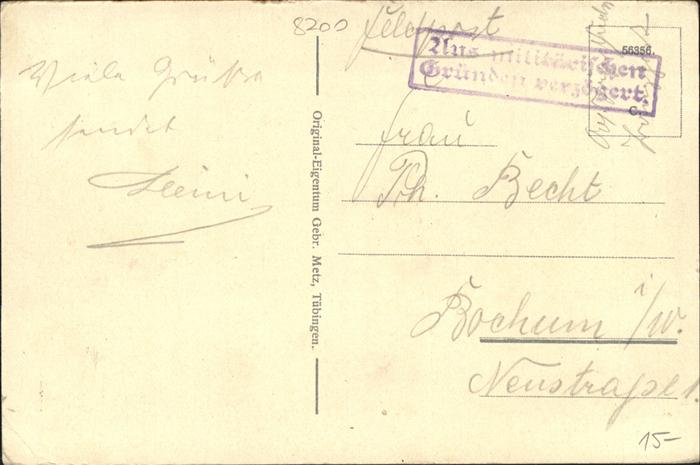 8200
Feldpost
Aus militärischen
Gründen verzögert.
56356.
C.
Viele Grüße
sendet
Heini
Original-Eigentum Gebr. Metz, Tübingen.
Frau
Ph. Becht
Bochum i/W.
Neustraße 1.
15-